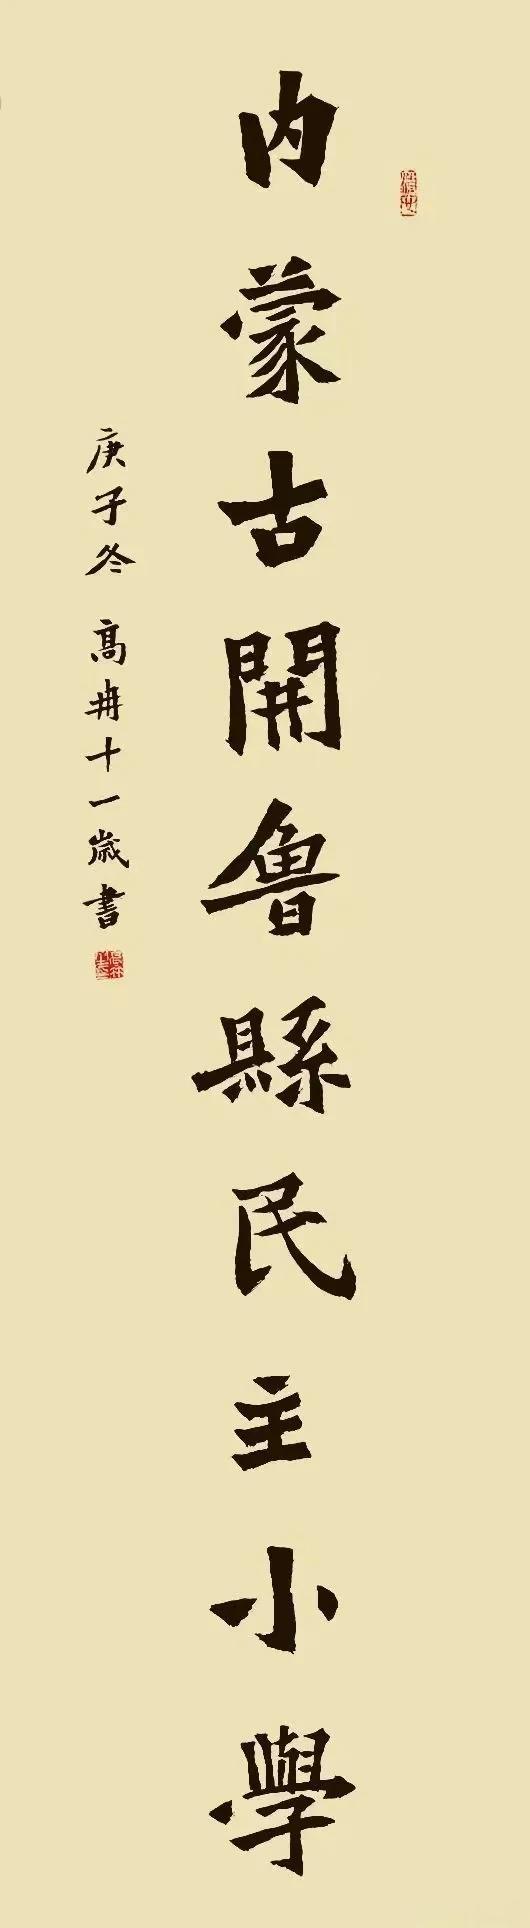 内蒙古開魯縣民主小學
庚子冬 高冉十一歲書